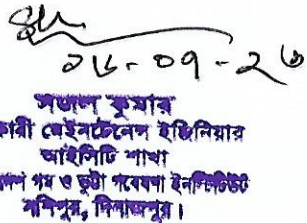 ২৮-০৭-২৬
সজল কুমার
কারী মেইনটেনেন্স ইঞ্জিনিয়ার
আইসিটি শাখা
গম ও ভুট্টা গবেষণা ইনস্টিটিউট
নশিপুর, দিনাজপুর।